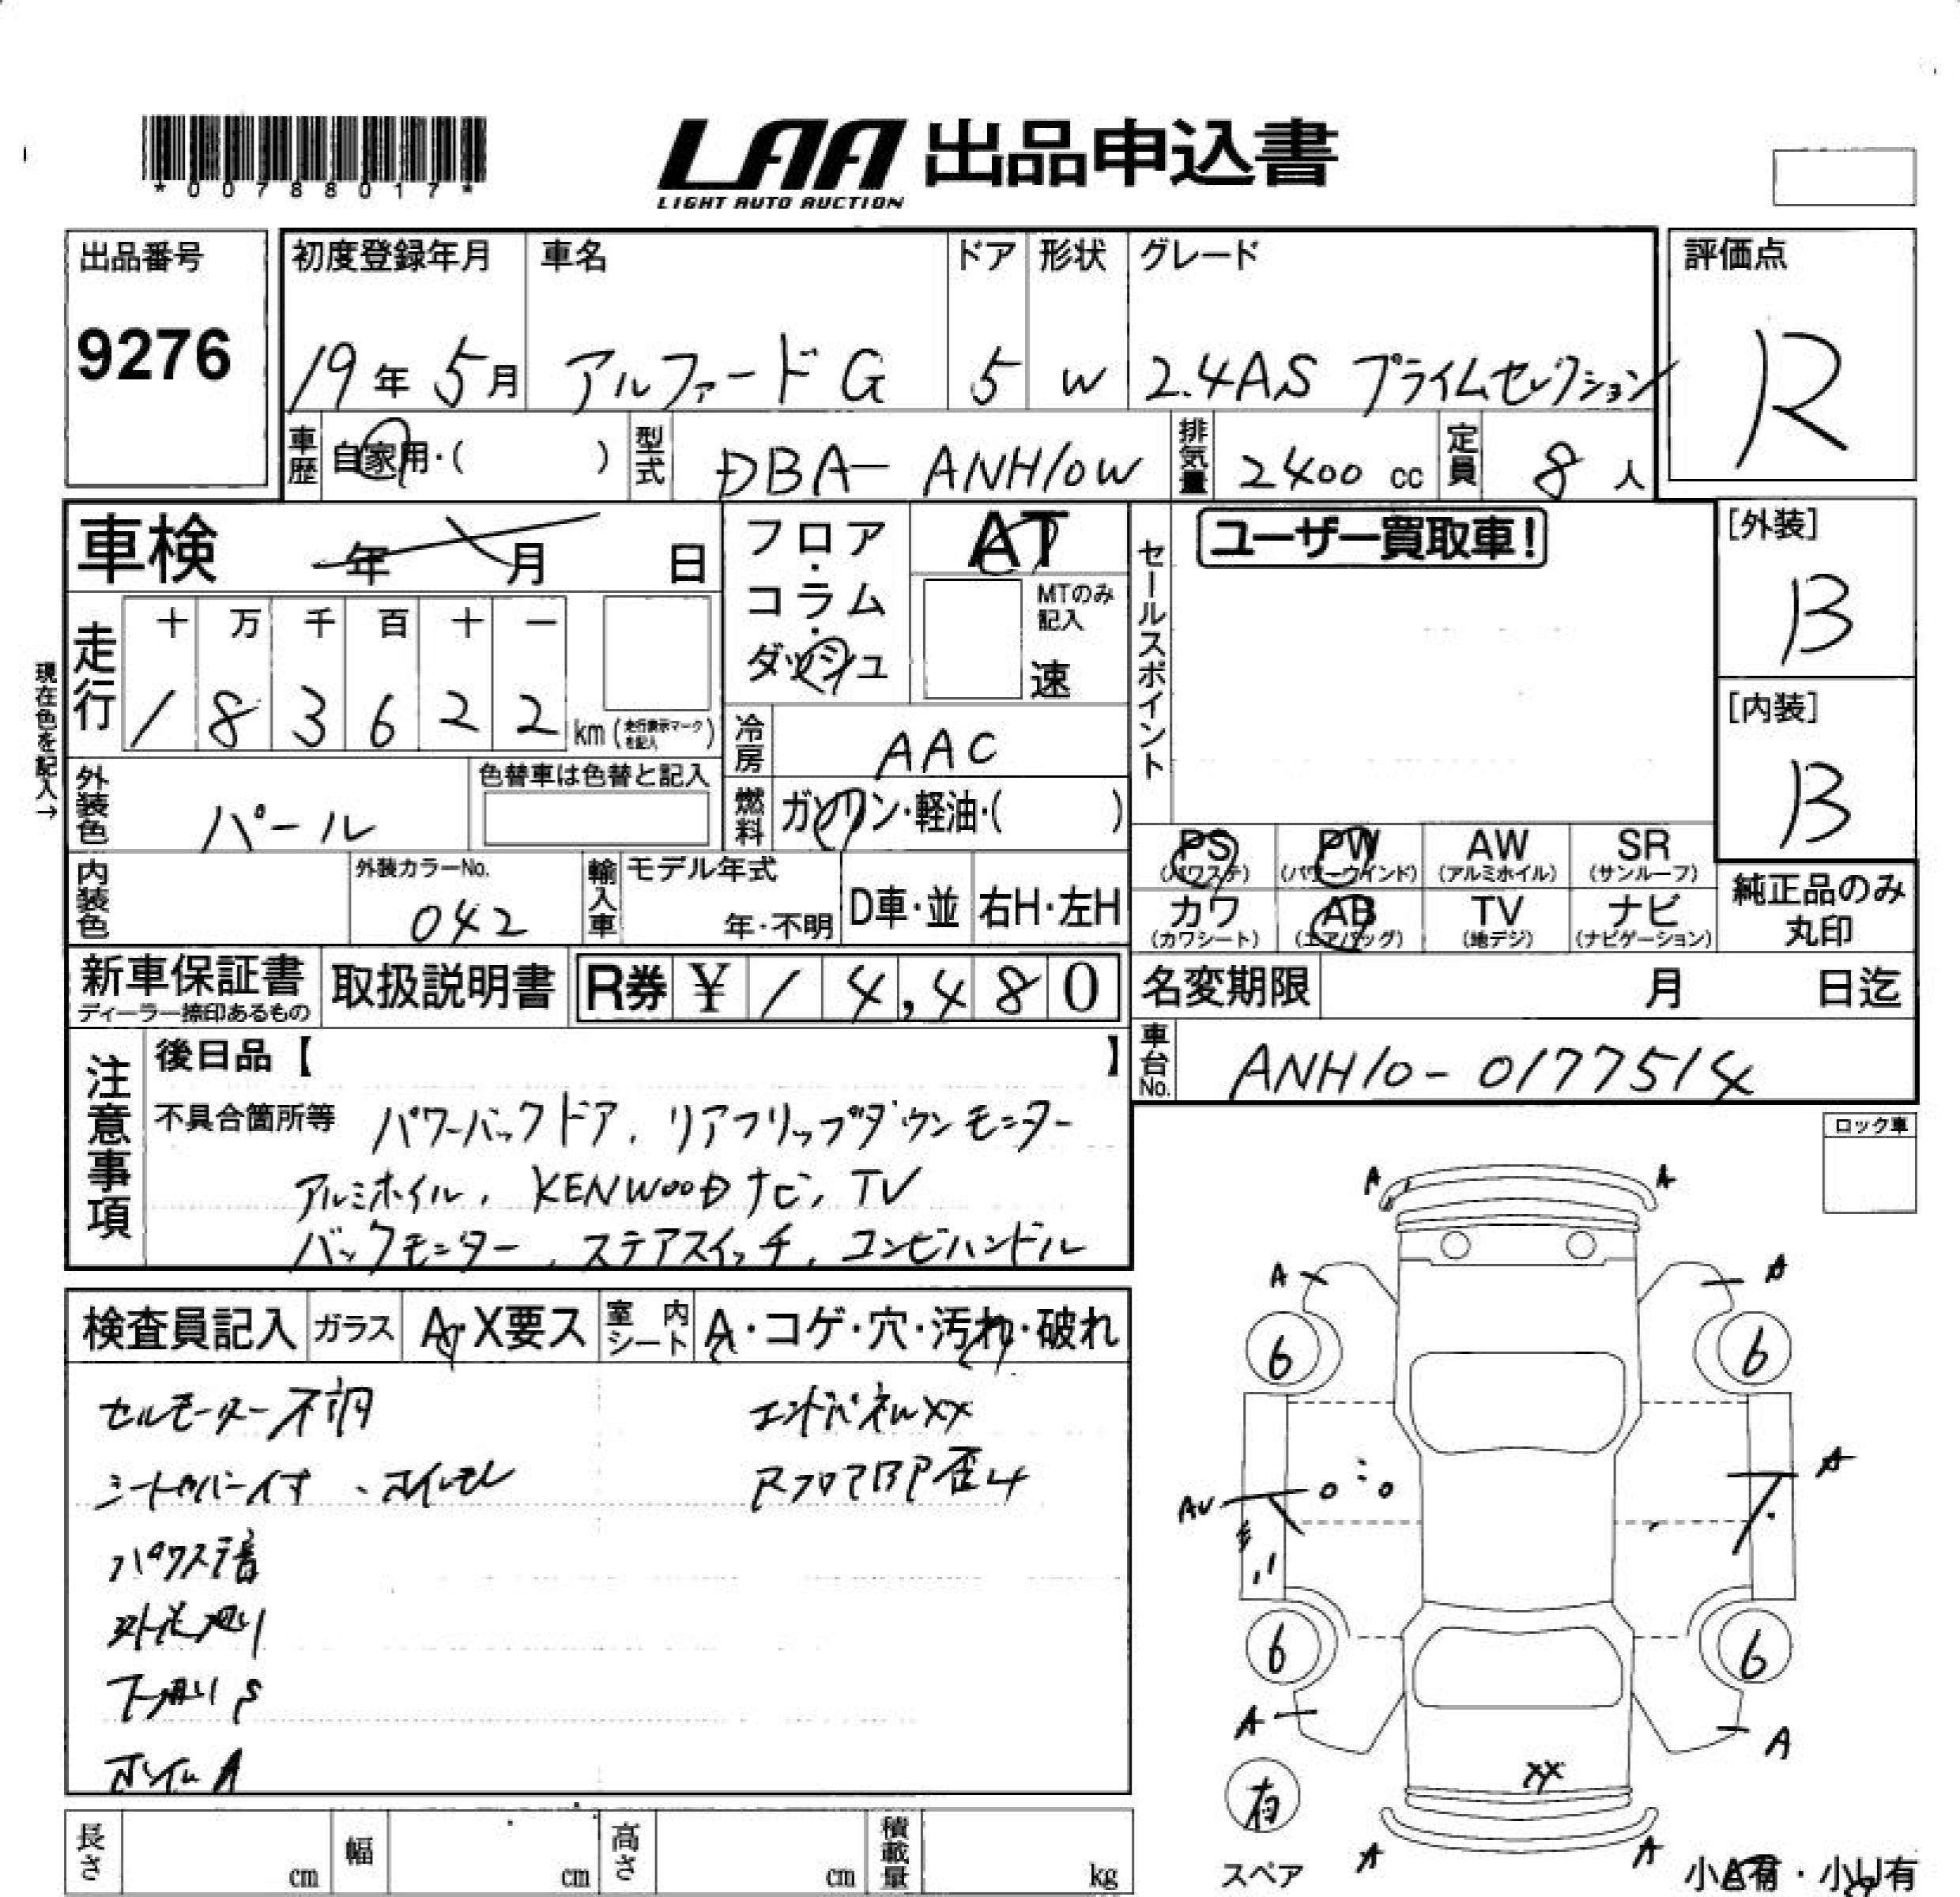 *00788017*
LAA 出品申込書
LIGHT AUTO AUCTION
出品番号
9276
初度登録年月 車名 ドア 形状 グレード
19年 5月 アルファード G 5 W 2.4AS プライムセレクション
評価点
R
車歴 自家用・( ) 型式 DBA- ANH10W 排気量 2400 cc 定員 8 人
車検 年 月 日
フロア・コラム・ダッシュ
AT
MTのみ記入
速
セールスポイント
ユーザー買取車!
[外装]
B
[内装]
B
現在色を記入→
走行
十 万 千 百 十 一
1 8 3 6 2 2 km (走行表示マークを記入)
冷房 AAC
外装色 パール
色替車は色替と記入
燃料 ガソリン・軽油・( )
PS (パワステ) PW (パワーウインド) AW (アルミホイル) SR (サンルーフ)
カワ (カワシート) AB (エアバッグ) TV (地デジ) ナビ (ナビゲーション)
純正品のみ丸印
内装色
外装カラーNo.
042
輸入車 モデル年式 年・不明 D車・並 右H・左H
新車保証書
ディーラー捺印あるもの
取扱説明書
R券 ¥ 1 4,4 8 0
名変期限 月 日迄
車台No. ANH10-0177514
注意事項
後日品【 】
不具合箇所等 パワーバックドア, リアフリップダウンモニター
アルミホイル, KENWOODナビ, TV
バックモニター, ステアスイッチ, コンビハンドル
ロック車
検査員記入 ガラス A・X要ス 室内シート A・コゲ・穴・汚れ・破れ
セルモーター不調 エンドパネルXX
パワステ音
下廻りS
ホイルA
A A
A A
6 6
AU A
6 6
A A
XX
有
スペア
A A
小A有・小U有
長さ cm 幅 cm 高さ cm 積載量 kg